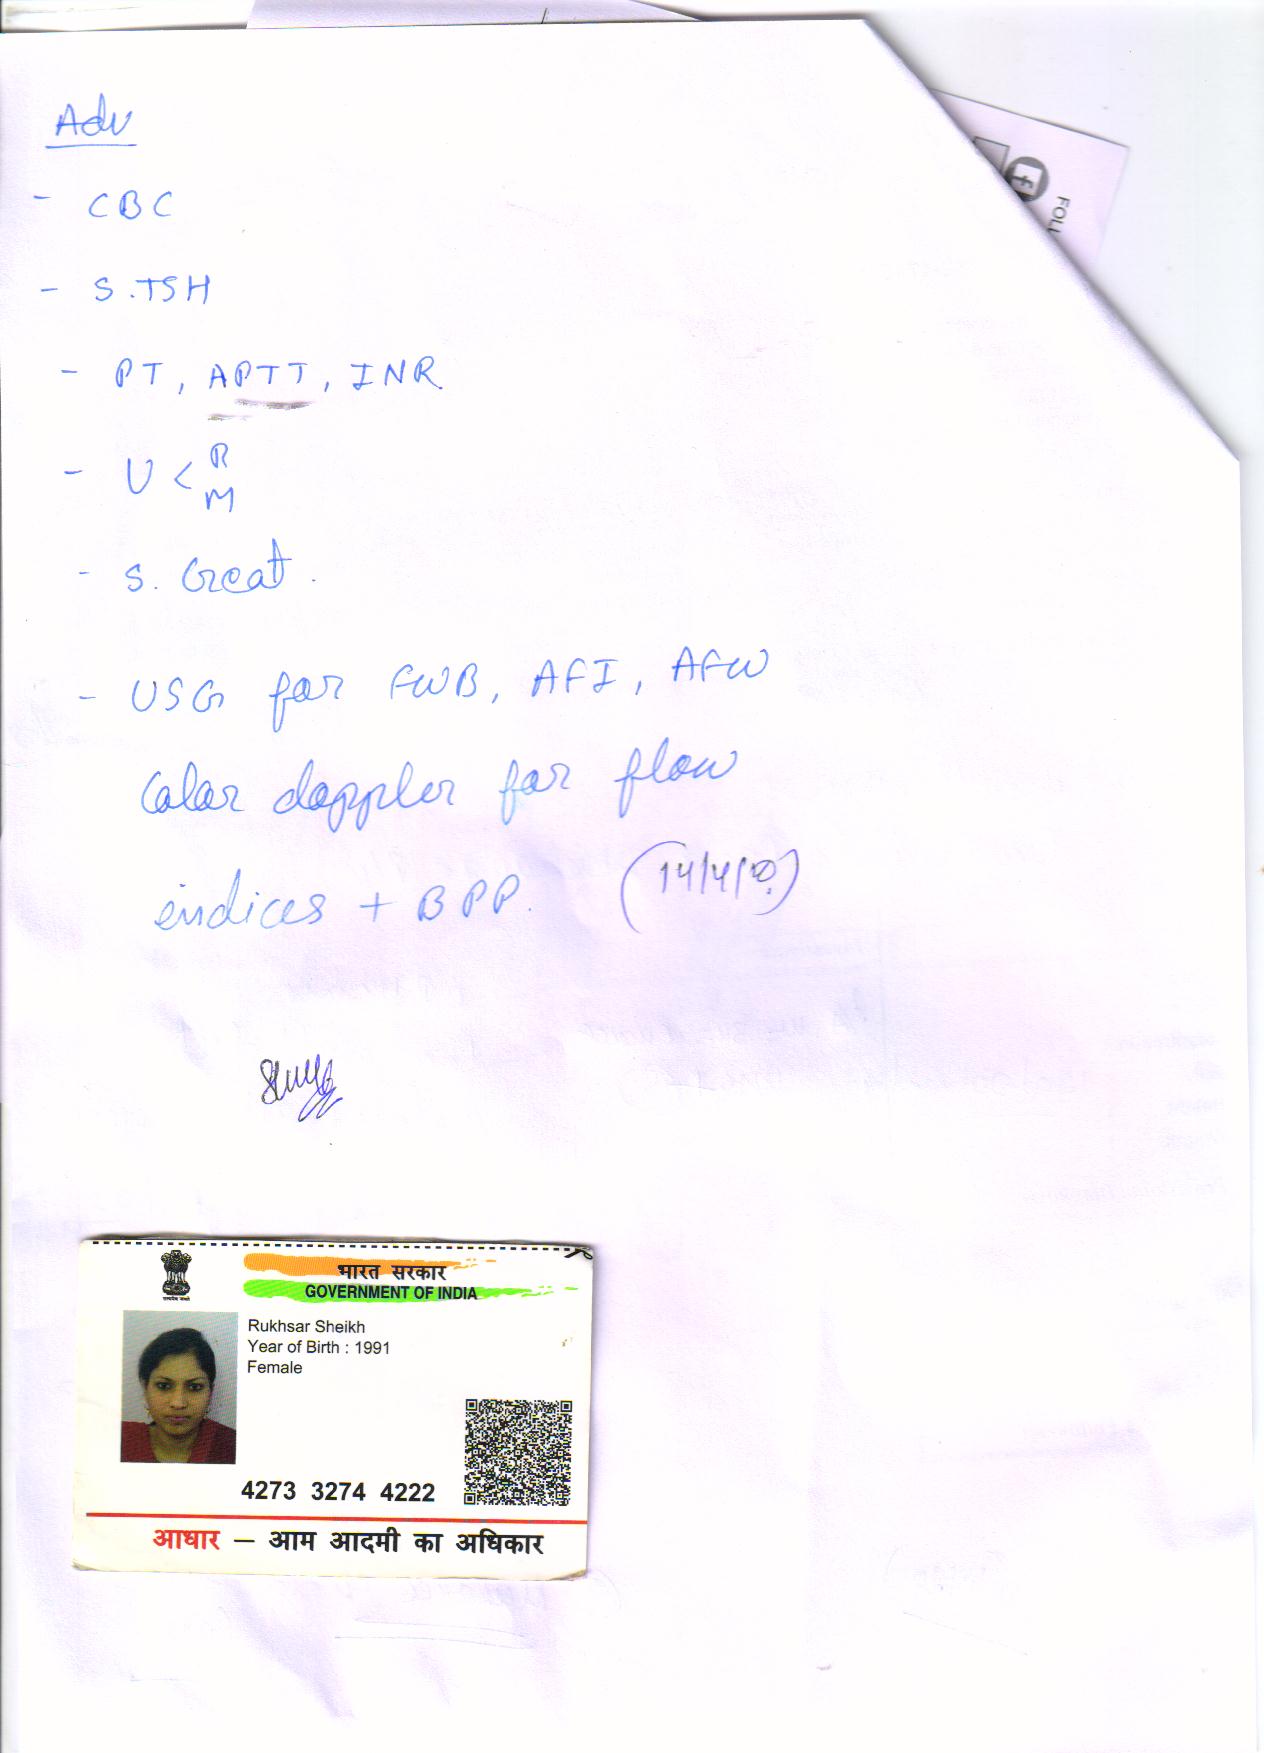 Adv
- CBC
- S.TSH
- PT, APTT, INR
- U < R
M
- S. Creat.
- USG for FWB, AFI, AFW
Color doppler for flow
indices + BPP.
FOLL
f
भारत सरकार
GOVERNMENT OF INDIA
Rukhsar Sheikh
Year of Birth : 1991
Female
4273 3274 4222
आधार – आम आदमी का अधिकार